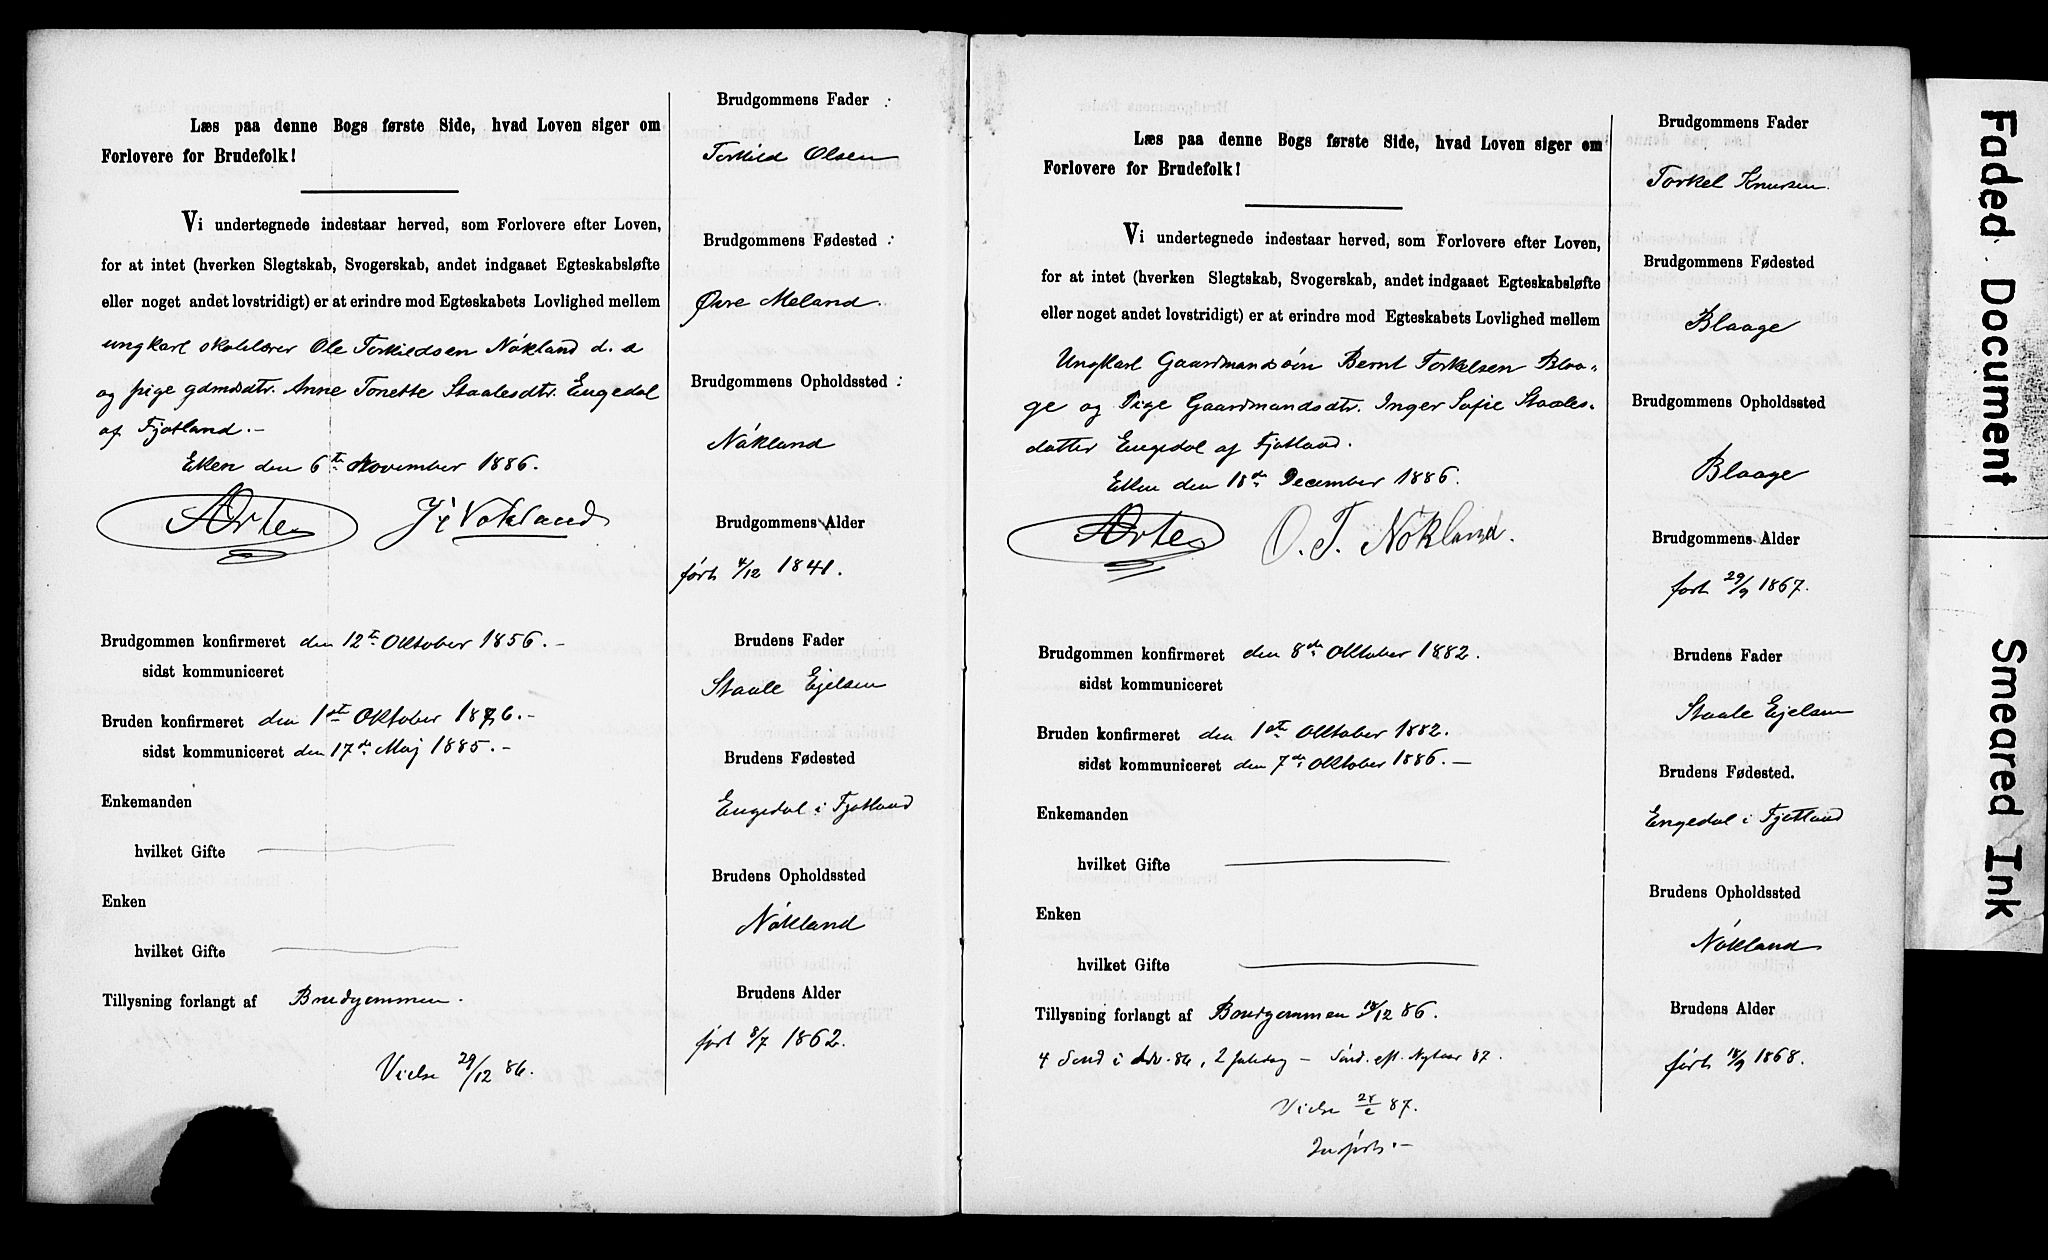 Læs paa denne Bogs første Side, hvad Loven siger om
Forlovere for Brudefolk!
Vi undertegnede indestaar herved, som Forlovere efter Loven,
for at intet (hverken Slegtskab, Svogerskab, andet indgaaet Egteskabsløfte
eller noget andet lovstridigt) er at erindre mod Egteskabets Lovlighed mellem
ungkarl skolelærer Ole Torkildsen Nökland d. a
og pige gdmdsdtr. Anne Tonette Staalesdtr. Engedal
af Fjotland.-
Eken den 6te November 1886.
J Nökland
Brudgommen konfirmeret den 12te Oktober 1856.-
sidst kommuniceret
Bruden konfirmeret den 1ste Oktober 1876.-
sidst kommuniceret den 17de Maj 1885.-
Enkemanden
hvilket Gifte
Enken
hvilket Gifte
Tillysning forlangt af Brudgommen.
Vielse 29/12 86.
Brudgommens Fader :
Torkild Olsen
Brudgommens Fødested :
Øvre Meland.
Brudgommens Opholdssted :
Nökland
Brudgommens Alder
født 4/12 1841.
Brudens Fader
Staale Ejelsen
Brudens Fødested
Engedal i Fjotland
Brudens Opholdssted
Nökland
Brudens Alder
født 8/7 1862.
Læs paa denne Bogs første Side, hvad Loven siger om
Forlovere for Brudefolk!
Vi undertegnede indestaar herved, som Forlovere efter Loven,
for at intet (hverken Slegtskab, Svogerskab, andet indgaaet Egteskabsløfte
eller noget andet lovstridigt) er at erindre mod Egteskabets Lovlighed mellem
Ungkarl Gaardmandssön Bernt Torkelsen Blaa-
ge og Pige Gaardmandsdtr. Inger Sofie Staales-
datter Engedal af Fjotland.
Eken den 18de December 1886.
O. T. Nökland.
Brudgommen konfirmeret den 8de Oktober 1882.
sidst kommuniceret
Bruden konfirmeret den 1ste Oktober 1882.
sidst kommuniceret den 7de Oktober 1886.-
Enkemanden
hvilket Gifte
Enken
hvilket Gifte
Tillysning forlangt af Brudgommen 18/12 86.
4 Sønd i Adv. 86, 2 Juledag - Sønd. eft. Nytaar 87.
Vielse 87.
Indført.-
Brudgommens Fader
Torkel Knutsen.
Brudgommens Fødested
Blaage
Brudgommens Opholdssted
Blaage
Brudgommens Alder
født 29/9 1867.
Brudens Fader
Staale Ejelsen
Brudens Fødested.
Engedal i Fjotland
Brudens Opholdssted
Nökland
Brudens Alder
født 18/9 1868.
Faded Document
Smeared Ink